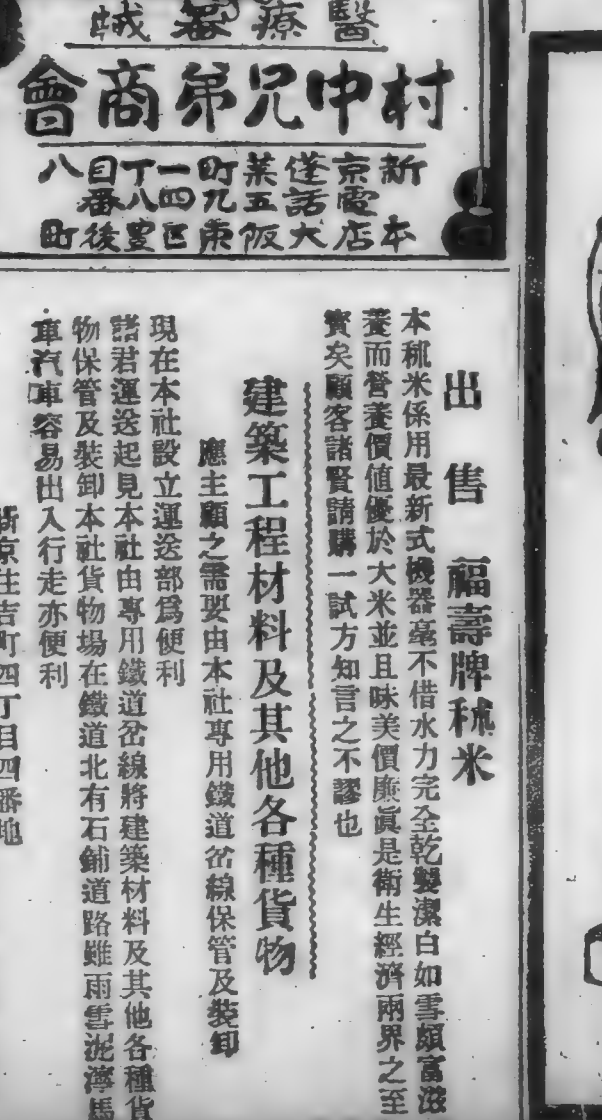 醫療器械
村中兄弟商會
新本
京電店
僅話大
菜五阪
町九東
一四區
丁八豊
目番後
八町
出售 福壽牌秫米
本秫米係用最新式機器毫不借水力完全乾製潔白如雪頗富滋
養而營養價値優於大米並且味美價廉眞是衛生經濟兩界之至
寳矣顧客諸賢請購一試方知言之不謬也
建築工程材料及其他各種貨物
應主顧之需要由本社專用鐵道岔線保管及裝卸
現在本社設立運送部爲便利
諸君運送起見本社由專用鐵道岔線將建築材料及其他各種貨
物保管及裝卸本社貨物場在鐵道北有石鋪道路雖雨雪泥濘馬
車汽車容易出入行走亦便利
新京住吉町四丁目四番地